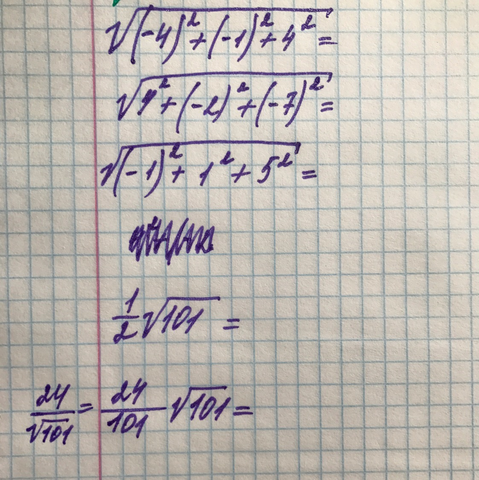 √((-4)² + (-1)² + 4²) =
√(9² + (-2)² + (-7)²) =
√((-1)² + 1² + 5²) =
1/2 √101 =
24/√101 = 24/101 √101 =